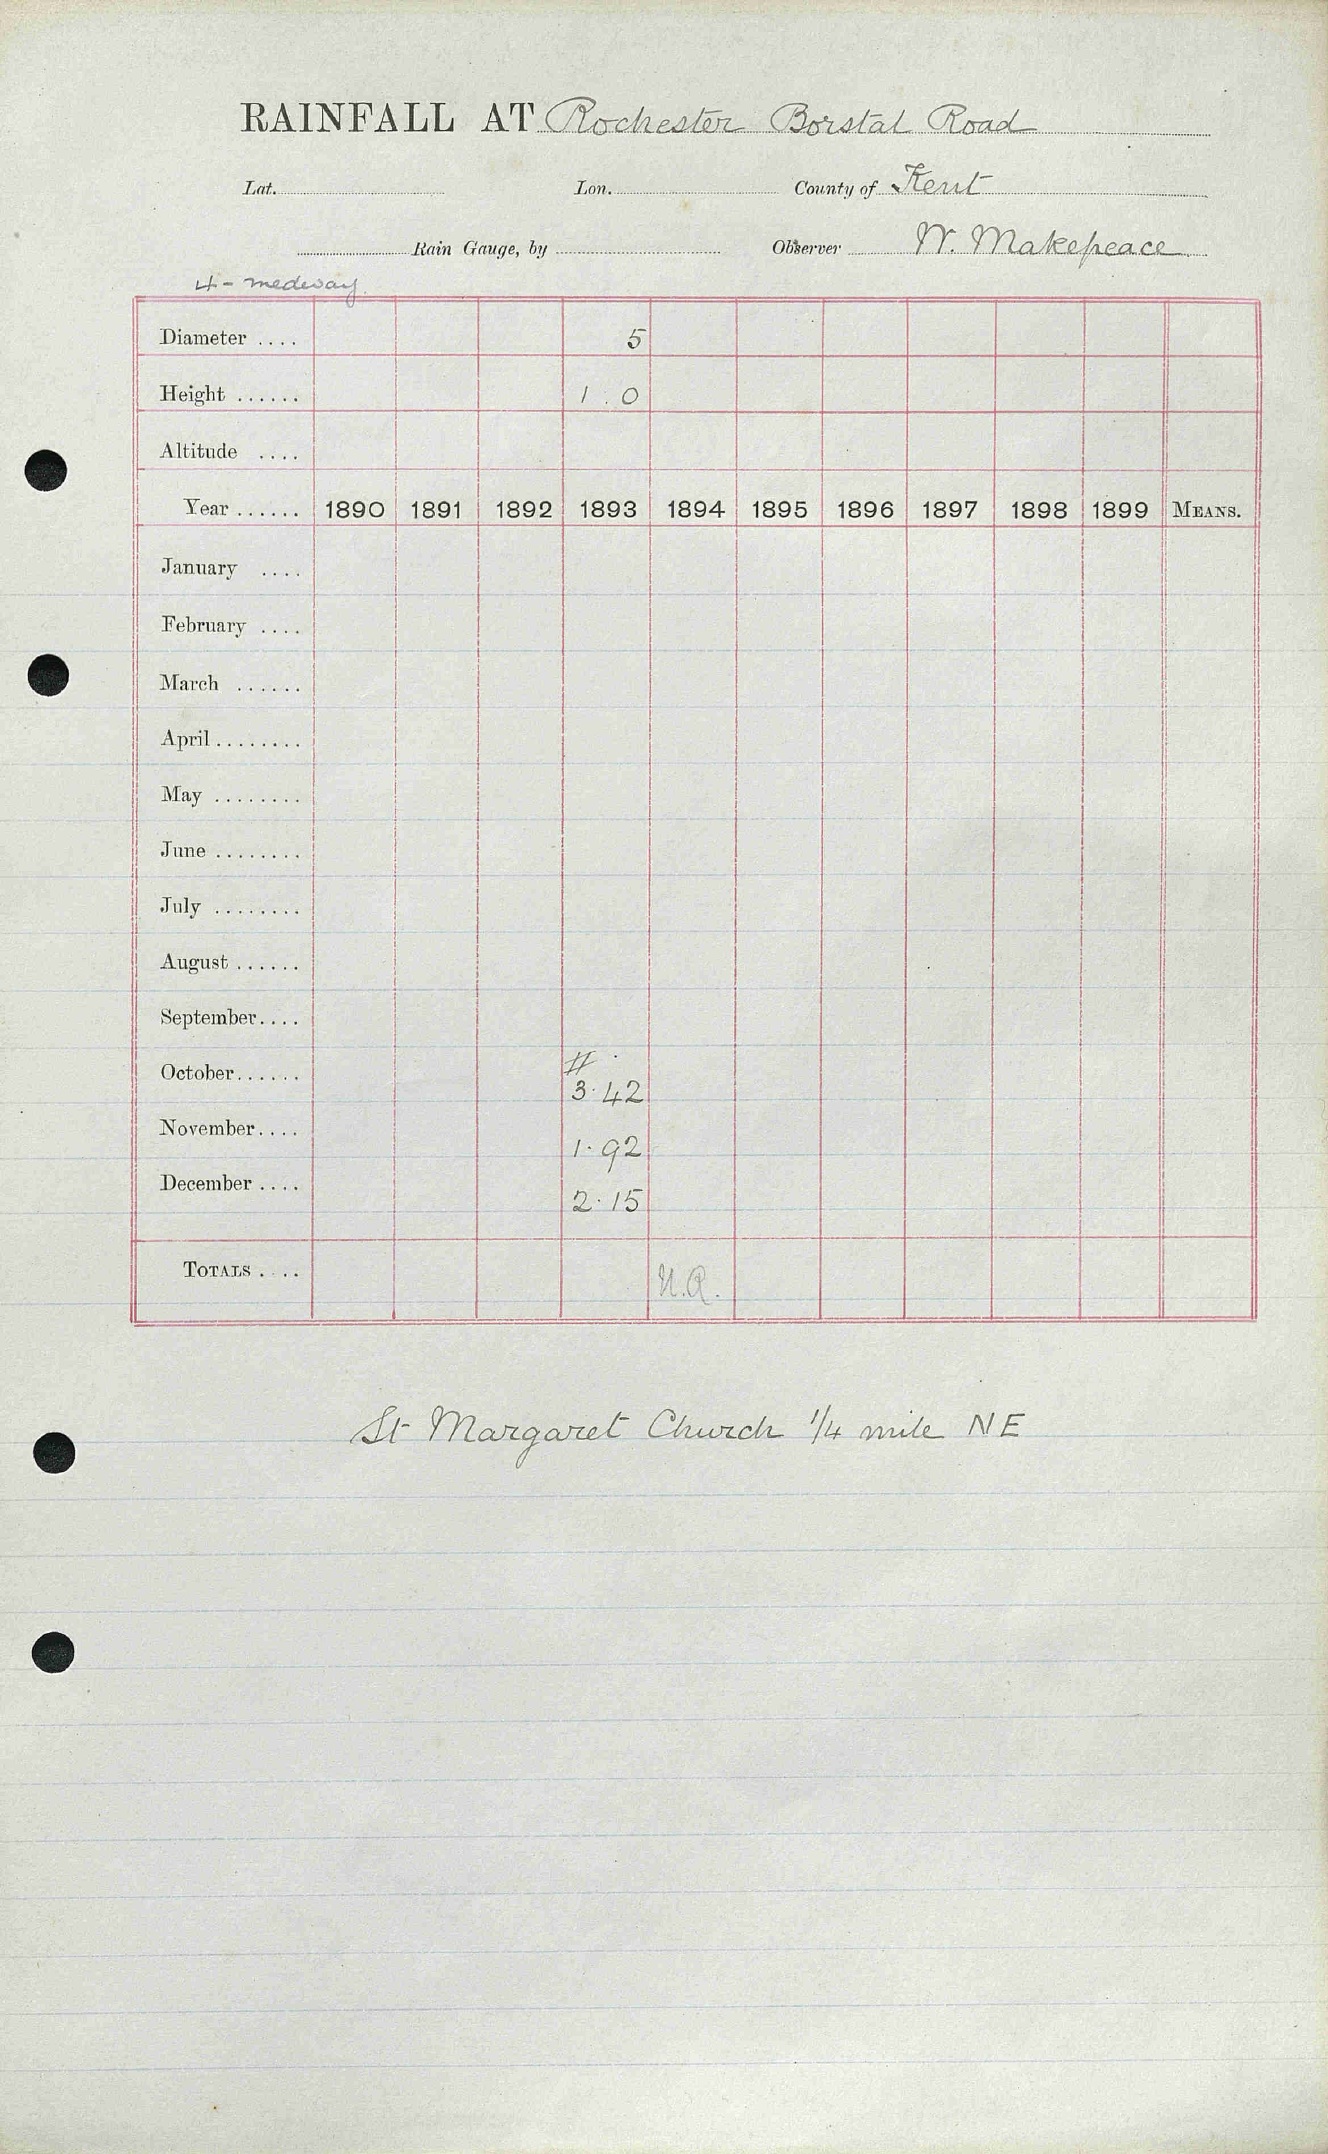 RAINFALL AT Rochester Borstal Road
Lat. Lon. County of Kent
Rain Gauge, by Observer W. Makepeace
4 - medway
Diameter .... 5
Height ...... 1 . 0
Altitude ....
Year ...... 1890 1891 1892 1893 1894 1895 1896 1897 1898 1899 MEANS.
January ....
February ....
March ......
April ........
May ........
June ........
July ........
August ......
September ....
#
October ...... 3.42
November .... 1.92
December .... 2.15
TOTALS .... N.R.
St Margaret Church 1/4 mile NE